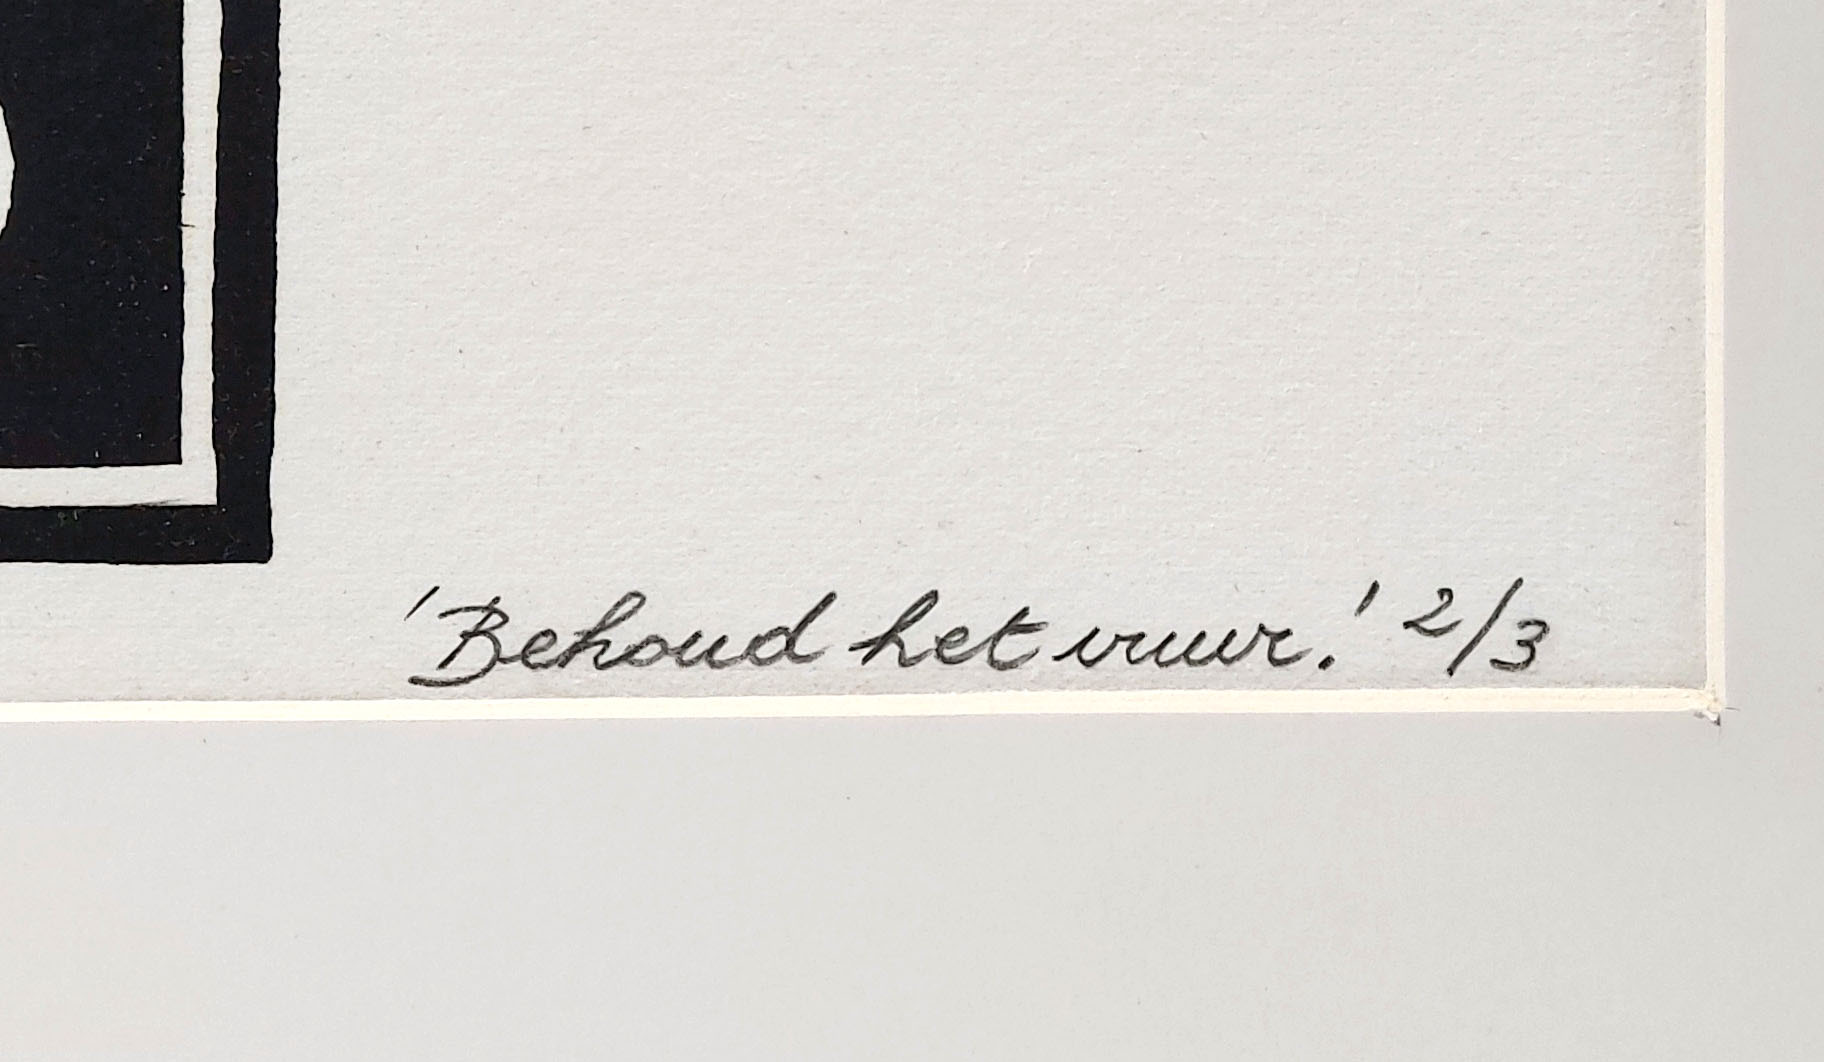 'Behoud het vuur.' 2/3